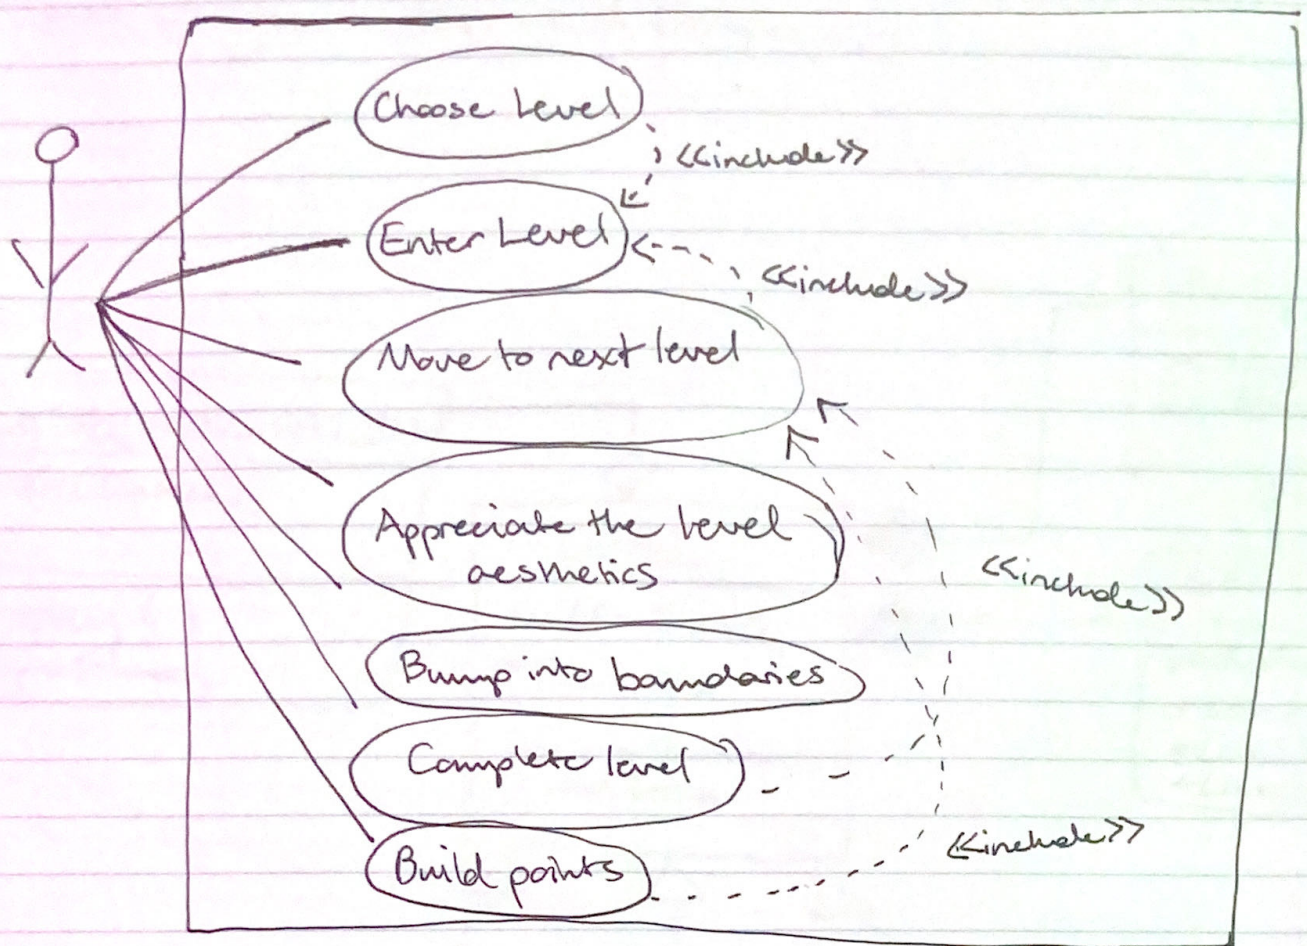 Choose Level
<<include>>
Enter Level
<<include>>
Move to next level
Appreciate the level
aesthetics
<<include>>
Bump into boundaries
Complete level
<<include>>
Build points